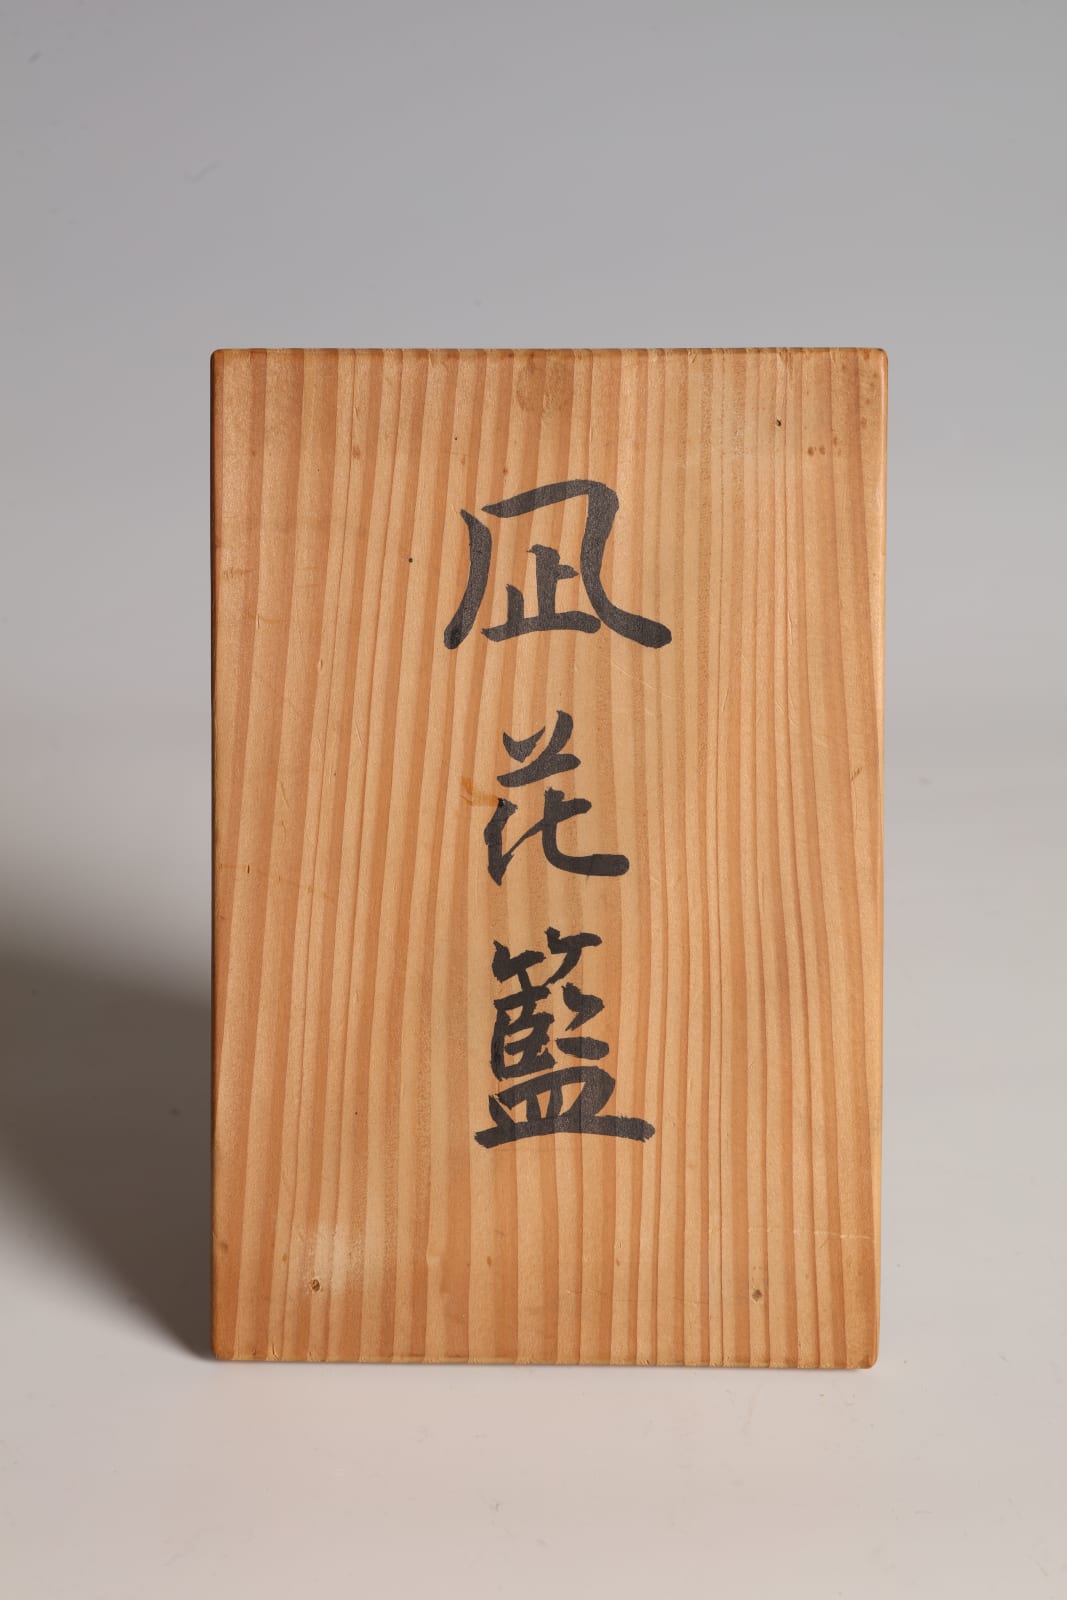 凪花籃